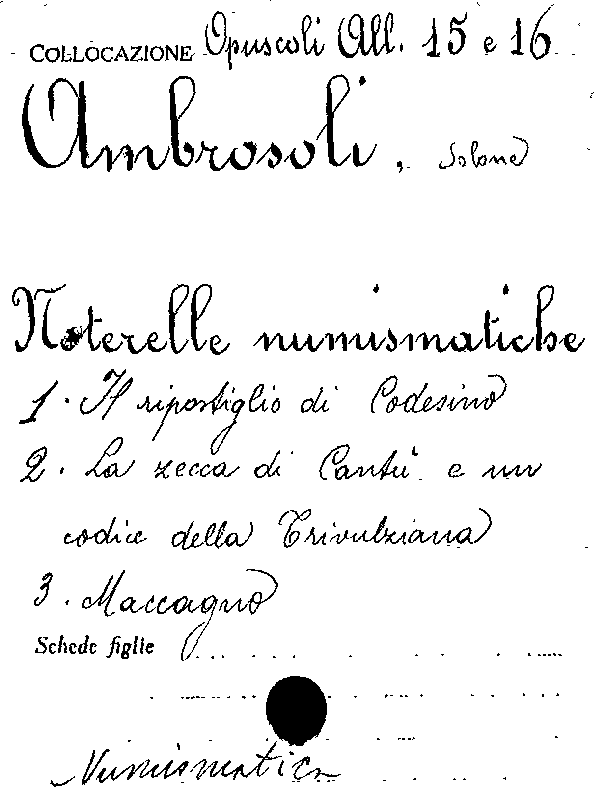 COLLOCAZIONE Opuscoli All. 15 e 16
Ambrosoli, Solone
Noterelle numismatiche
1. Il ripostiglio di Codesino
2. La zecca di Cantù e un
codice della Trivulziana
3. Maccagno
Schede figlie
Numismatica